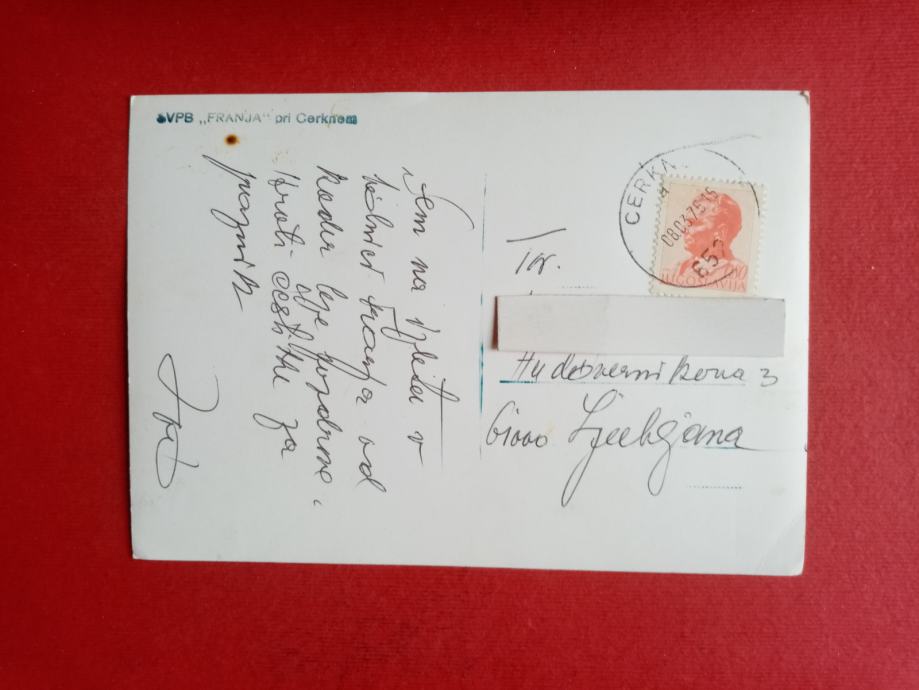 SVPB „FRANJA" pri Cerknem
Sem na izletu v
bolnici Franja od
koder lepe pozdrave,
hkrati čestitke za
praznik
CERKN
08.03.75
JUGOSLAVIJA
Tov.
Hudovernikova 3
61000 Ljubljana